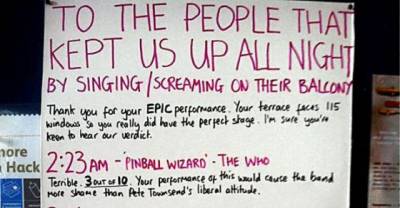 TO THE PEOPLE THAT
KEPT US UP ALL NIGHT
BY SINGING/SCREAMING ON THEIR BALCONY
Thank you for your EPIC performance. Your terrace faces 115
windows so you really did have the perfect stage. I'm sure you're
keen to hear our verdict.
2:23AM - 'PINBALL WIZARD' - THE WHO
Terrible. 3 OUT OF 10. Your performance of this would cause the band
more shame than Pete Townsend's liberal attitude.
more
n Hack